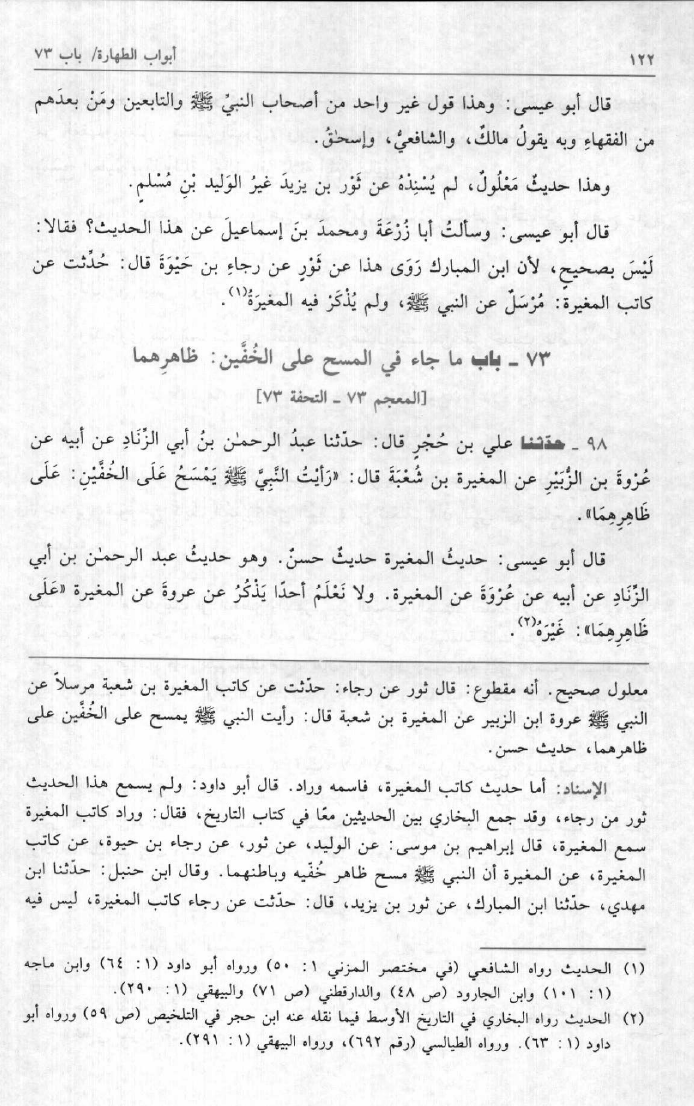 ١٢٢
أبواب الطهارة/ باب ٧٣
قال أبو عيسى: وهذا قول غير واحد من أصحاب النبيِّ ﷺ والتابعين ومَنْ بعدَهم
من الفقهاءِ وبه يقولُ مالكٌ، والشافعيُّ، وإسحٰقُ.
وهذا حديثٌ مَعْلُولٌ، لم يُسْنِدْهُ عن ثَوْر بن يزيدَ غيرُ الوَليد بْنِ مُسْلمٍ.
قال أبو عيسى: وسألتُ أبا زُرْعَةَ ومحمدَ بنَ إسماعيلَ عن هذا الحديث؟ فقالا:
لَيْسَ بصحيحٍ، لأن ابن المبارك رَوَى هذا عن ثَوْرٍ عن رجاءِ بن حَيْوَةَ قال: حُدِّثت عن
كاتب المغيرة: مُرْسَلٌ عن النبي ﷺ، ولم يُذْكَرْ فيه المغيرَةُ(١).
٧٣ ـ باب ما جاء في المسح على الخُفَّين: ظاهرِهما
[المعجم ٧٣ ـ التحفة ٧٣]
٩٨ ـ حدّثنا علي بن حُجْرٍ قال: حدّثنا عبدُ الرحمـٰن بنُ أبي الزِّنَادِ عن أبيه عن
عُرْوةَ بن الزُّبَيْرِ عن المغيرة بن شُعْبَةَ قال: «رَأَيْتُ النَّبِيَّ ﷺ يَمْسَحُ عَلَى الخُفَّيْنِ: عَلَى
ظَاهِرِهِمَا».
قال أبو عيسى: حديثُ المغيرة حديثٌ حسنٌ. وهو حديثُ عبد الرحمـٰن بن أبي
الزِّنَادِ عن أبيه عن عُرْوَةَ عن المغيرة. ولا نَعْلَمُ أحدًا يَذْكُرُ عن عروةَ عن المغيرة «عَلَى
ظَاهِرِهِمَا»: غَيْرَهُ(٢).
معلول صحيح. أنه مقطوع: قال ثور عن رجاء: حدّثت عن كاتب المغيرة بن شعبة مرسلاً عن
النبي ﷺ عروة ابن الزبير عن المغيرة بن شعبة قال: رأيت النبي ﷺ يمسح على الخُفَّين على
ظاهرهما، حديث حسن.
الإسناد: أما حديث كاتب المغيرة، فاسمه وراد. قال أبو داود: ولم يسمع هذا الحديث
ثور من رجاء، وقد جمع البخاري بين الحديثين معًا في كتاب التاريخ، فقال: وراد كاتب المغيرة
سمع المغيرة، قال إبراهيم بن موسى: عن الوليد، عن ثور، عن رجاء بن حيوة، عن كاتب
المغيرة، عن المغيرة أن النبي ﷺ مسح ظاهر خُفّيه وباطنهما. وقال ابن حنبل: حدّثنا ابن
مهدي، حدّثنا ابن المبارك، عن ثور بن يزيد، قال: حدّثت عن رجاء كاتب المغيرة، ليس فيه
(١) الحديث رواه الشافعي (في مختصر المزني ١: ٥٠) ورواه أبو داود (١: ٦٤) وابن ماجه
(١: ١٠١) وابن الجارود (ص ٤٨) والدارقطني (ص ٧١) والبيهقي (١: ٢٩٠).
(٢) الحديث رواه البخاري في التاريخ الأوسط فيما نقله عنه ابن حجر في التلخيص (ص ٥٩) ورواه أبو
داود (١: ٦٣). ورواه الطيالسي (رقم ٦٩٢)، ورواه البيهقي (١: ٢٩١).